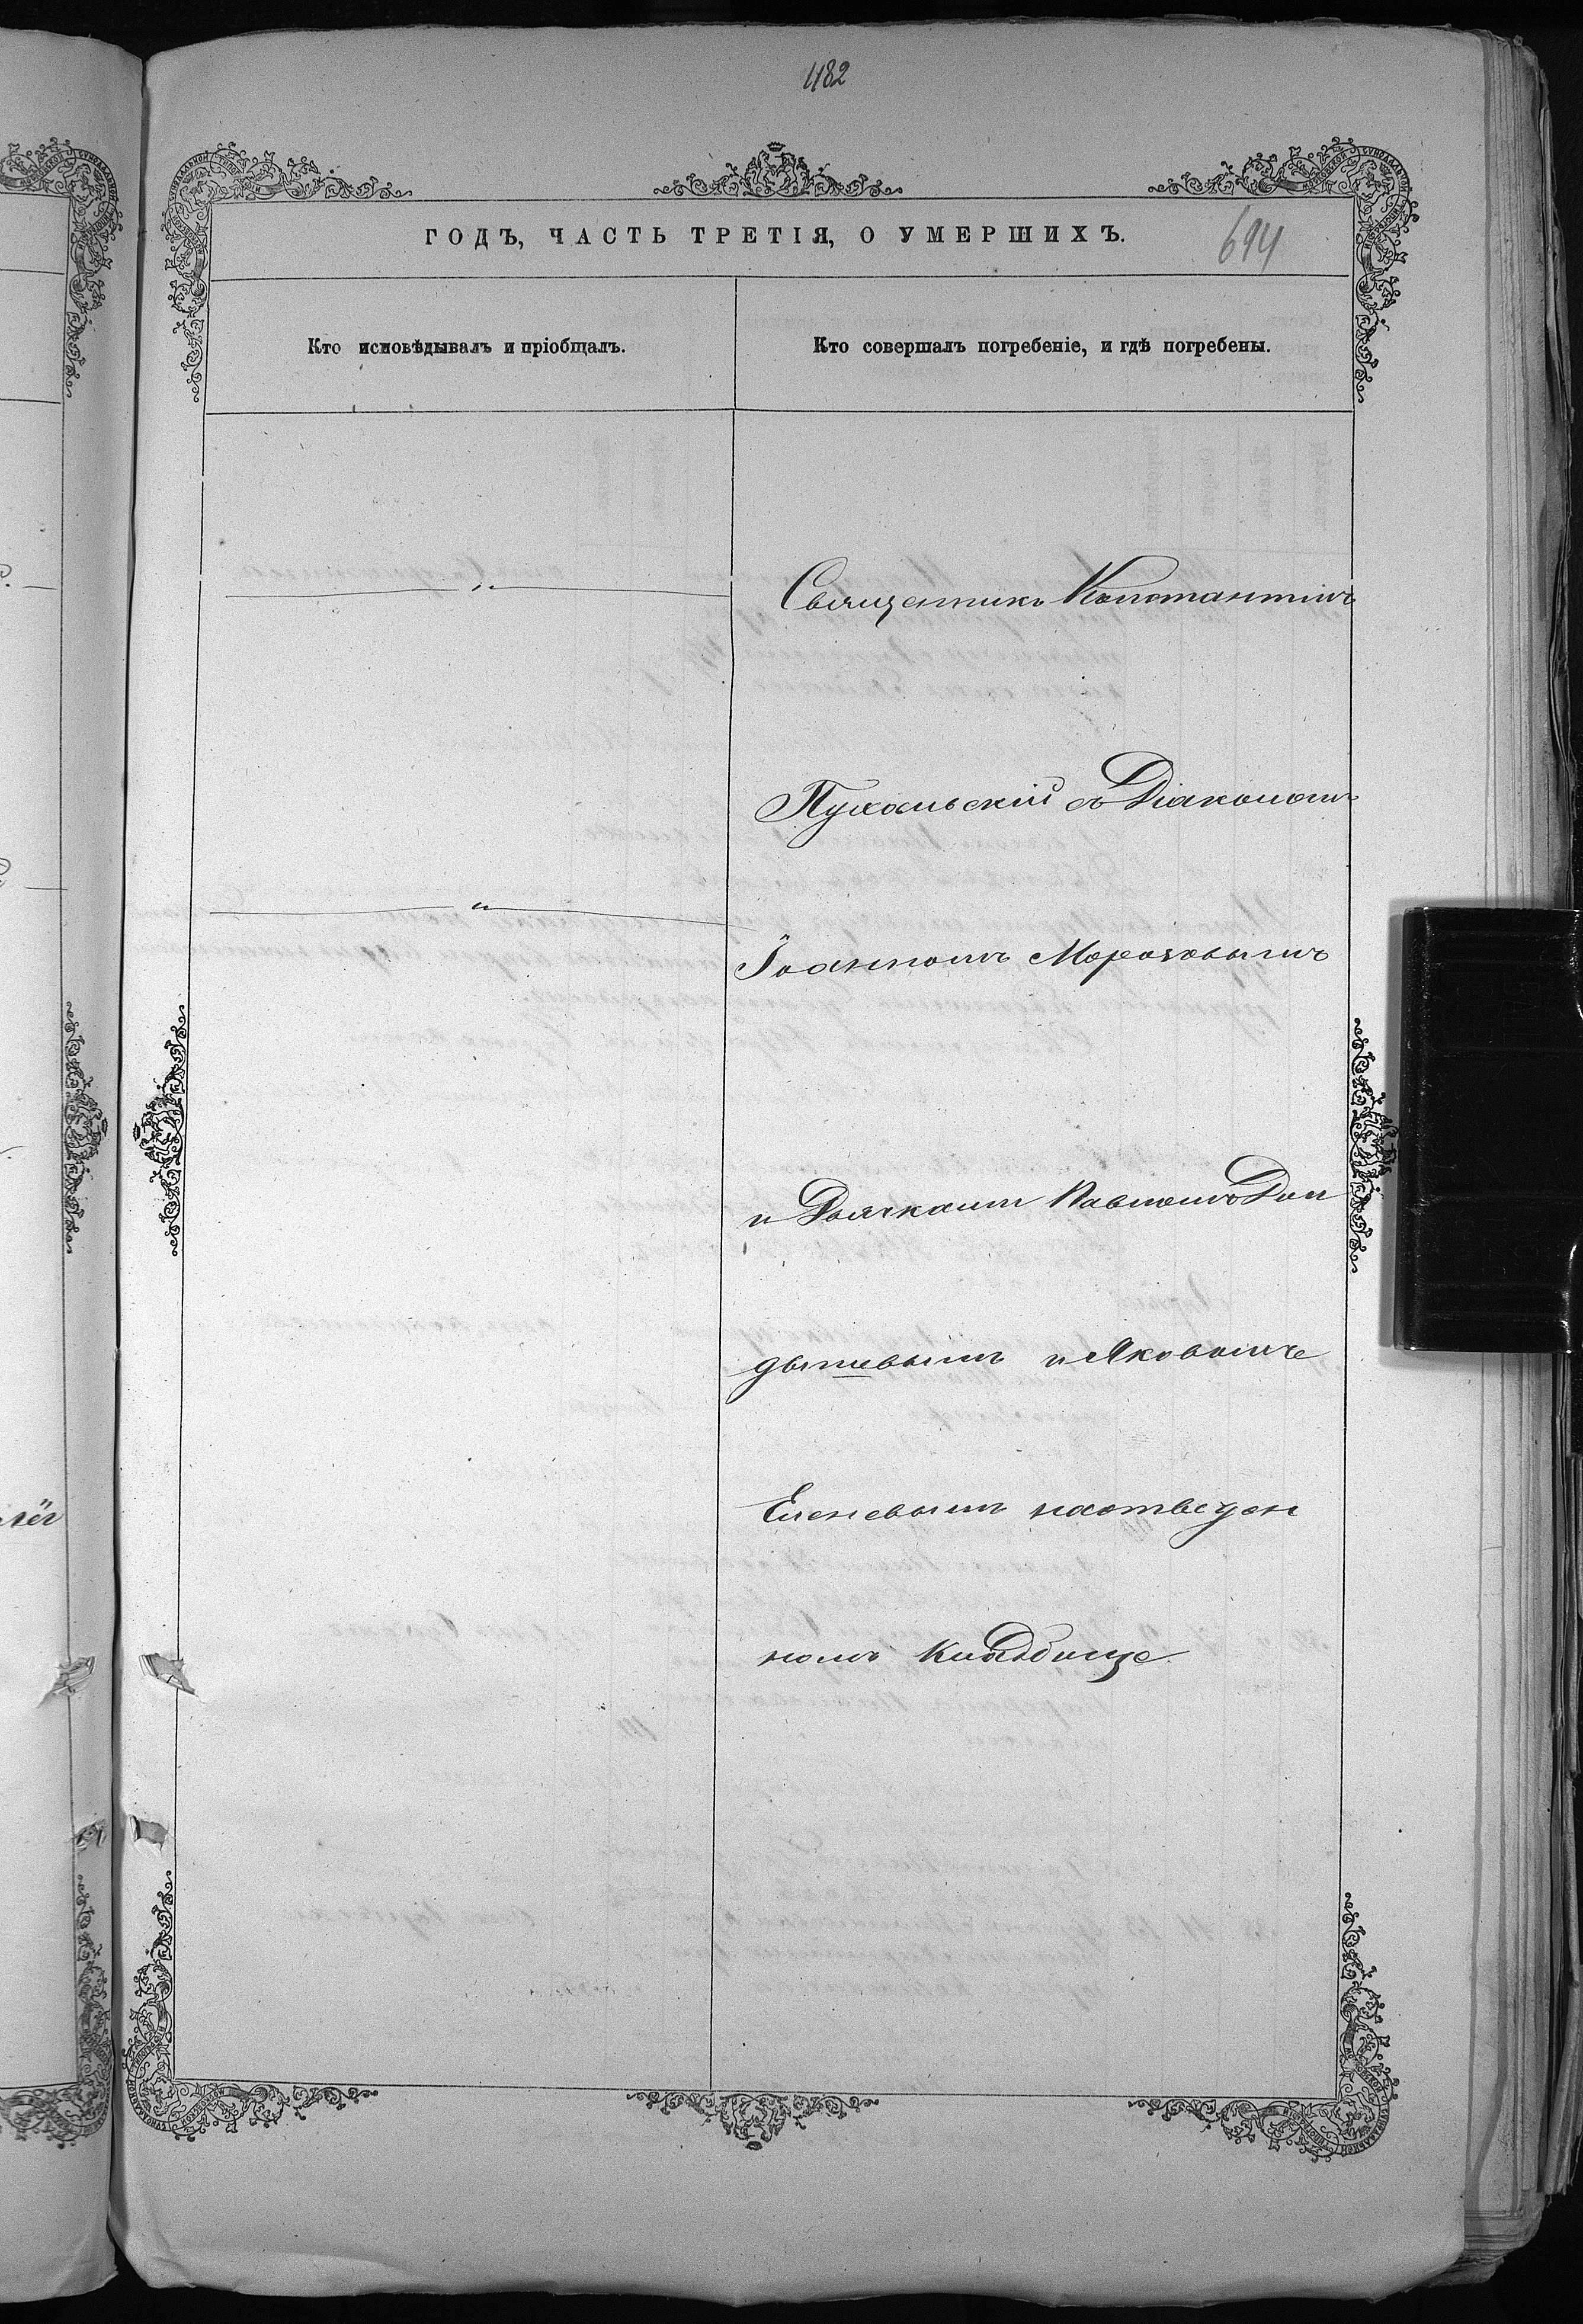 482
ГОДЪ, ЧАСТЬ ТРЕТІЯ, О УМЕРШИХЪ.
694
Кто исповѣдывалъ и пріобщалъ.
Кто совершалъ погребеніе, и гдѣ погребены.
Священникъ Константинъ
Пухальскій съ Діакономъ
Іоанномъ Морозовымъ
и Дьячками Павломъ
и Яковомъ
Еленевымъ на отведен
номъ Кладбище